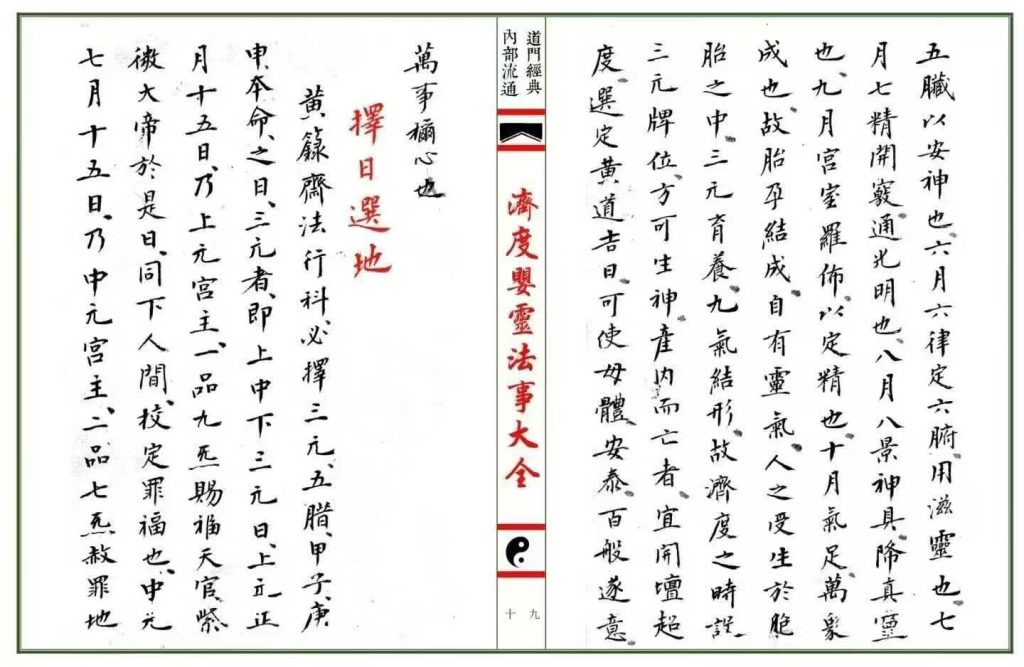 五臟以安神也六月六律定六腑用滋靈也七
月七精開竅通光明也、八月八景神具、降真靈
也、九月宮室羅佈、以定精也十月氣足萬象
成也、故胎孕結成自有靈氣、人之受生於胞
胎之中、三元育養、九氣結形、故濟度之時設
三元牌位、方可生神產內而亡者宜開壇超
度、選定黃道吉日可使母體安泰、百般遂意
道門經典
內部流通
濟度嬰靈法事大全
九
十
萬事穪心也
擇日選地
黃籙齋法行科、必擇三元、五腊、甲子、庚
申、本命、之日、三元者、即上中下三元日、上元正
月十五日、乃上元宮主、一品九炁賜福天官、紫
微大帝於是日、同下人間、校定罪福也、中元
七月十五日、乃中元宮主、二品七炁赦罪地